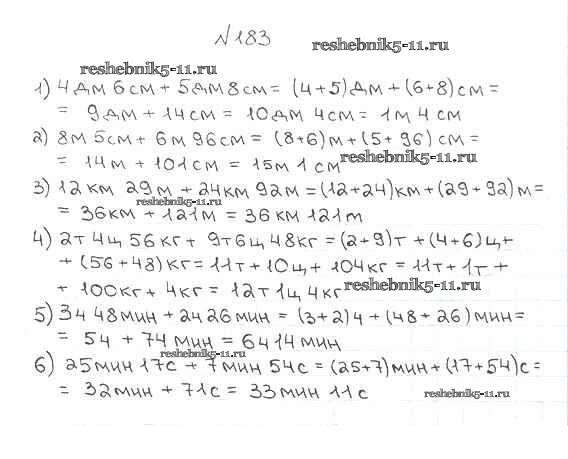 №183
reshebnik5-11.ru
reshebnik5-11.ru
1) 4дм 6см + 5дм 8см = (4+5)дм + (6+8)см =
= 9дм + 14см = 10дм 4см = 1м 4см
2) 8м 5см + 6м 96см = (8+6)м + (5+96)см =
= 14м + 101см = 15м 1см
reshebnik5-11.ru
3) 12км 29м + 24км 92м = (12+24)км + (29+92)м =
reshebnik5-11.ru
= 36км + 121м = 36км 121м
4) 2т 4ц 56кг + 9т 6ц 48кг = (2+9)т + (4+6)ц +
+ (56+48)кг = 11т + 10ц + 104кг = 11т + 1т +
+ 100кг + 4кг = 12т 1ц 4кг
reshebnik5-11.ru
5) 3ч 48мин + 2ч 26мин = (3+2)ч + (48+26)мин =
= 5ч + 74мин = 6ч 14мин
reshebnik5-11.ru
6) 25мин 17с + 7мин 54с = (25+7)мин + (17+54)с =
= 32мин + 71с = 33мин 11с
reshebnik5-11.ru